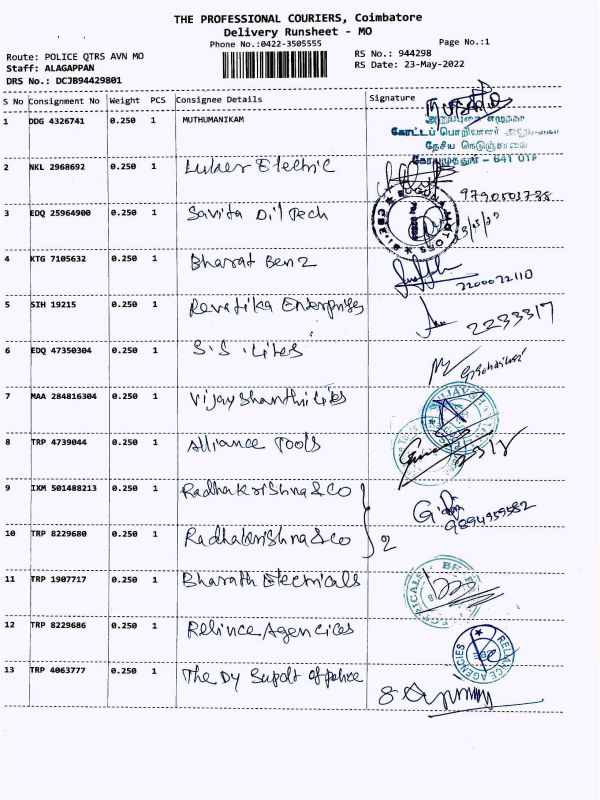 THE PROFESSIONAL COURIERS, Coimbatore
Delivery Runsheet - MO
Phone No.:0422-3505555
Page No.:1
Route: POLICE QTRS AVN MO
RS No.: 944298
Staff: ALAGAPPAN
RS Date: 23-May-2022
DRS No.: DCJB94429801
S No Consignment No Weight PCS Consignee Details Signature
1 DDG 4326741 0.250 1 MUTHUMANIKAM
கோட்டப் பொறியாளர்
தேசிய நெடுஞ்சாலை
2 NKL 2968692 0.250 1 Luker Electric
9790503738
3 EDQ 25964900 0.250 1 Savita Oil Tech
4 KTG 7105632 0.250 1 Bharat Benz
2200072110
5 SIH 19215 0.250 1 Revatika Enterprises
2233317
6 EDQ 47350304 0.250 1 S.S. Lites
7 MAA 284816304 0.250 1 Vijay Shanthi Lites
8 TRP 4739044 0.250 1 Alliance Tools
9 IXM 501488213 0.250 1 Radhakrishna & Co
9894959582
10 TRP 8229680 0.250 1 Radhakrishna & Co 2
11 TRP 1907717 0.250 1 Bharath Electricals
12 TRP 8229686 0.250 1 Relince Agencices
RELIANCE AGENCIES
13 TRP 4063777 0.250 1 The Dy Supdt of police